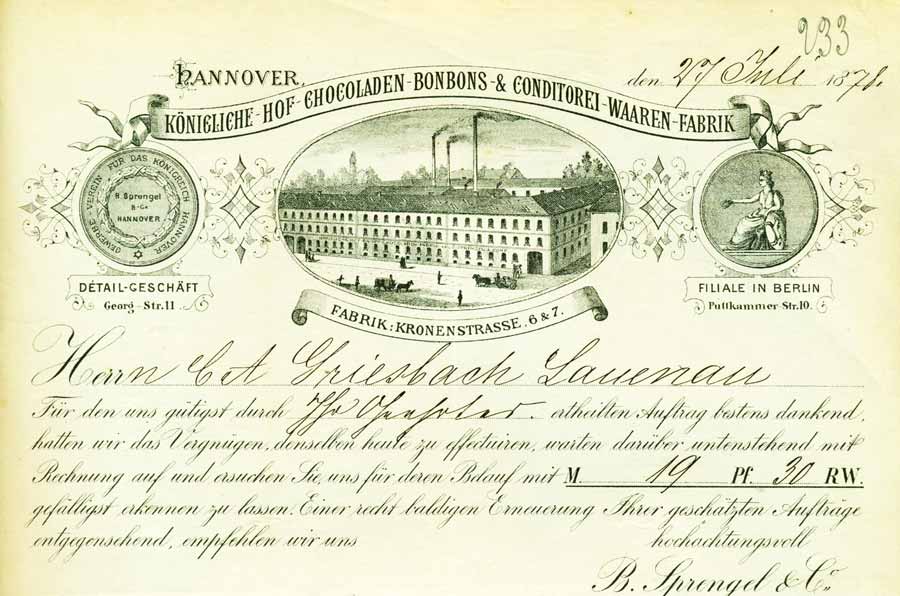 233
HANNOVER, den 27 Juli 1878.
KÖNIGLICHE-HOF-CHOCOLADEN-BONBONS-& CONDITOREI-WAAREN-FABRIK
GEWERBE VEREIN FÜR DAS KÖNIGREICH HANNOVER
B. Sprengel
& Co
HANNOVER
DÉTAIL-GESCHÄFT
Georg-Str. 11
FILIALE IN BERLIN
Puttkammer-Str. 10.
FABRIK: KRONENSTRASSE. 6 & 7.
Herrn C A Griesbach Lauenau
Für den uns gütigst durch Ihr Geehrtes. ertheilten Auftrag bestens dankend,
hatten wir das Vergnügen, denselben heute zu effectuiren, warten darüber untenstehend mit
Rechnung auf und ersuchen Sie, uns für deren Belauf mit M. 19 Pf. 30 RW.
gefälligst erkennen zu lassen. Einer recht baldigen Erneuerung Ihrer geschätzten Aufträge
entgegensehend, empfehlen wir uns hochachtungsvoll
B. Sprengel & Co.